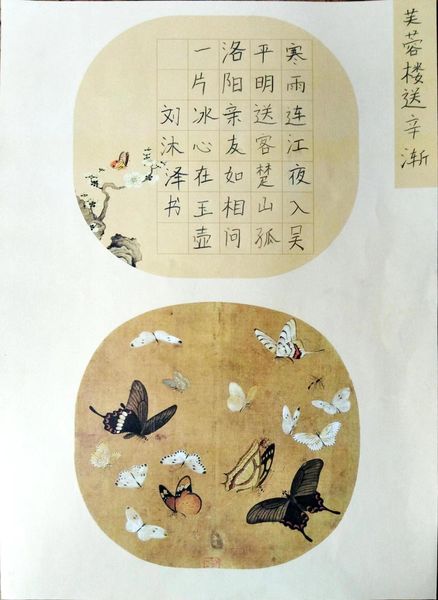 芙蓉楼送辛渐
寒雨连江夜入吴
平明送客楚山孤
洛阳亲友如相问
一片冰心在玉壶
刘沐泽书